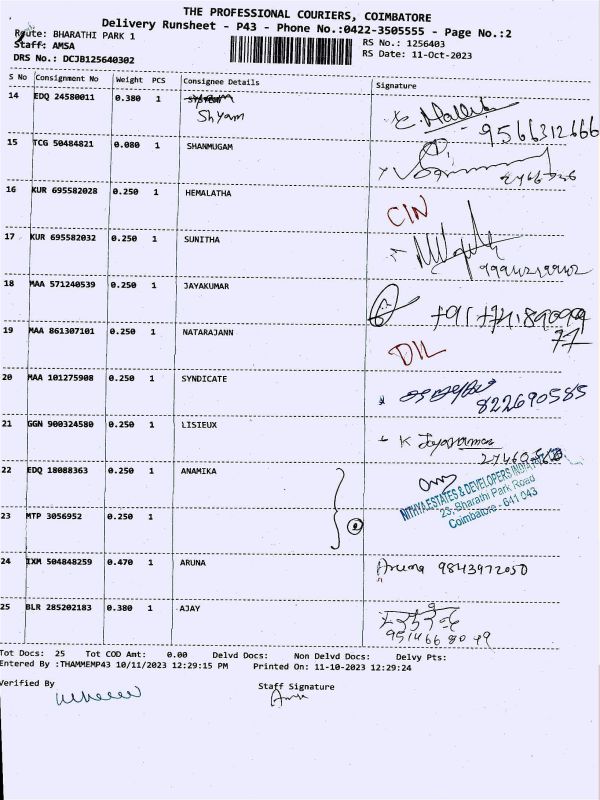 THE PROFESSIONAL COURIERS, COIMBATORE
Delivery Runsheet - P43 - Phone No.:0422-3505555 - Page No.:2
Route: BHARATHI PARK 1
Staff: AMSA
RS No.: 1256403
DRS No.: DCJB125640302
RS Date: 11-Oct-2023
S No Consignment No Weight PCS Consignee Details Signature
14 EDQ 24580011 0.380 1
Shyam
9566312666
15 TCG 50484821 0.080 1 SHANMUGAM
16 KUR 695582028 0.250 1 HEMALATHA
CIN
17 KUR 695582032 0.250 1 SUNITHA
9994219942
18 MAA 571240539 0.250 1 JAYAKUMAR
19 MAA 861307101 0.250 1 NATARAJANN
DIL
20 MAA 101275908 0.250 1 SYNDICATE
822690585
21 GGN 900324580 0.250 1 LISIEUX
K Jayaraman
22 EDQ 18088363 0.250 1 ANAMIKA
NITHYA ESTATES & DEVELOPERS INDIA
23, Bharathi Park Road
Coimbatore - 641 043
23 MTP 3056952 0.250 1
2
24 IXM 504848259 0.470 1 ARUNA
Aruna 9843972050
25 BLR 285202183 0.380 1 AJAY
Tot Docs: 25 Tot COD Amt: 0.00 Delvd Docs: Non Delvd Docs: Delvy Pts:
Entered By :THAMMEMP43 10/11/2023 12:29:15 PM Printed On: 11-10-2023 12:29:24
Verified By
Staff Signature